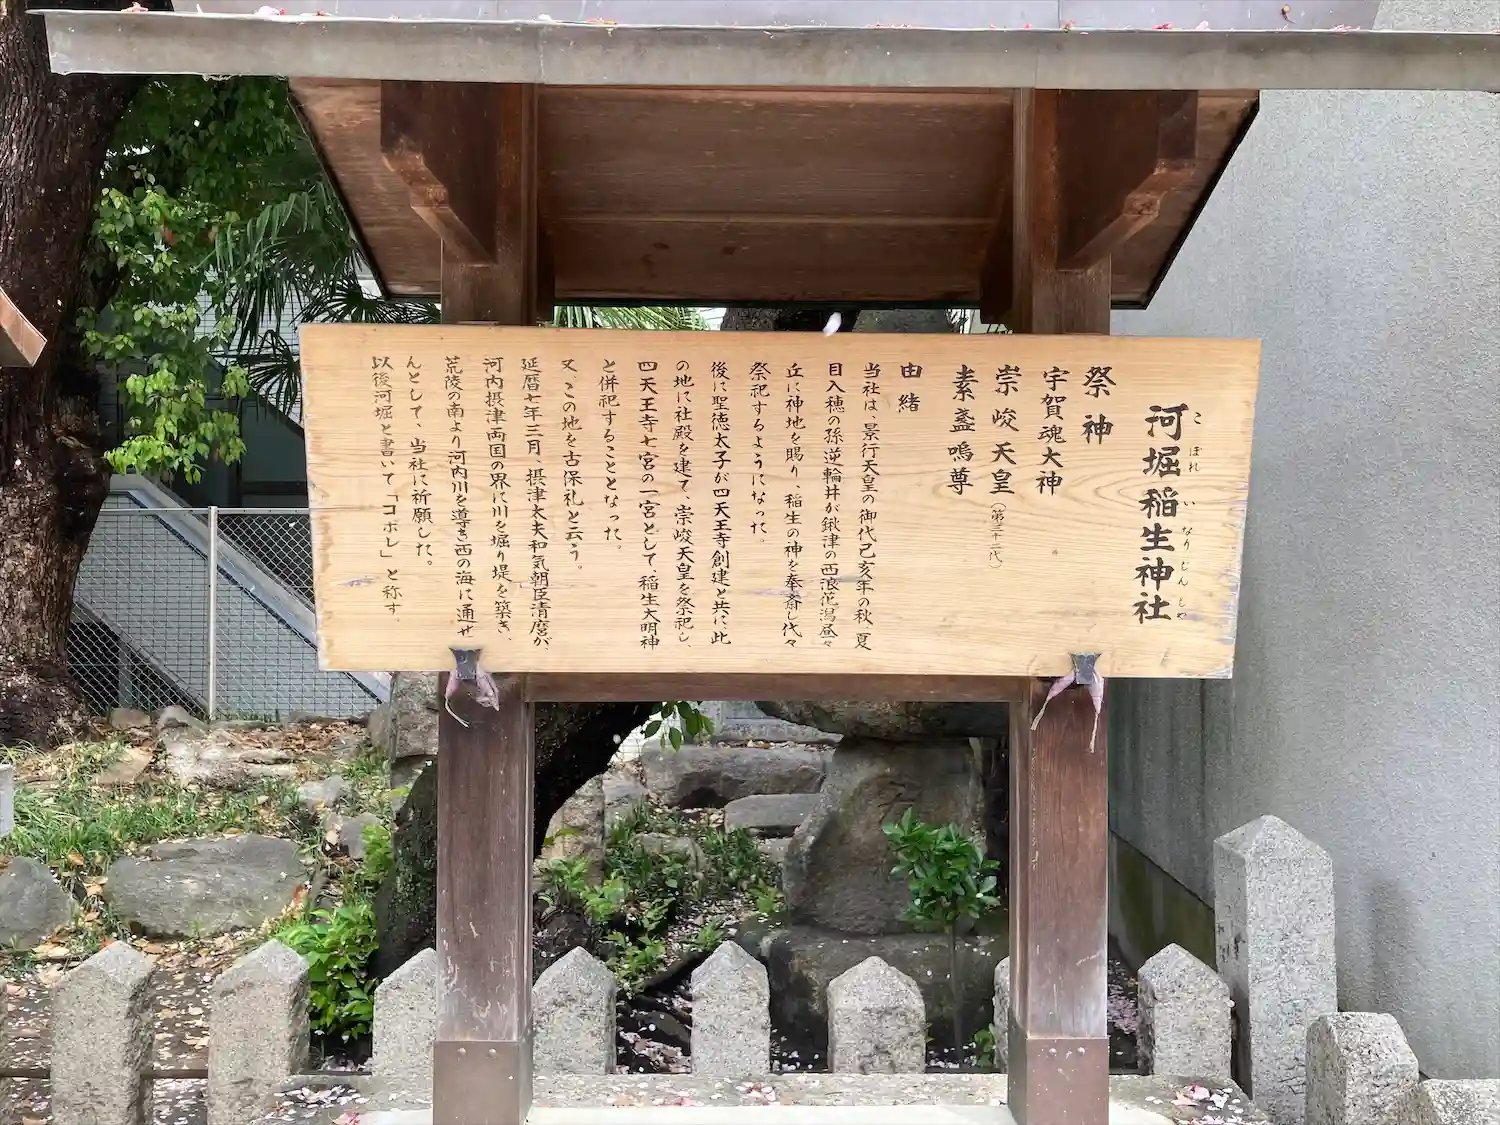 河堀稲生神社
こぼれいなりじんしゃ
祭神
宇賀魂大神
崇峻天皇(第三十二代)
素盞嗚尊
由緒
当社は、景行天皇の御代己亥年の秋、夏
目入穂の孫逆輪井が鍬津の西浪花潟昼々
丘に神地を賜り、稲生の神を奉斎し代々
祭祀するようになった。
後に聖徳太子が四天王寺創建と共に、此
の地に社殿を建て、崇峻天皇を祭祀し、
四天王寺七宮の一宮として、稲生大明神
と併祀することとなった。
又、この地を古保礼と云う。
延暦七年三月、摂津太夫和気朝臣清麿が、
河内摂津両国の界に川を堀り堤を築き、
荒陵の南より河内川を導き西の海に通せ
んとして、当社に祈願した。
以後河堀と書いて「コボレ」と称す。